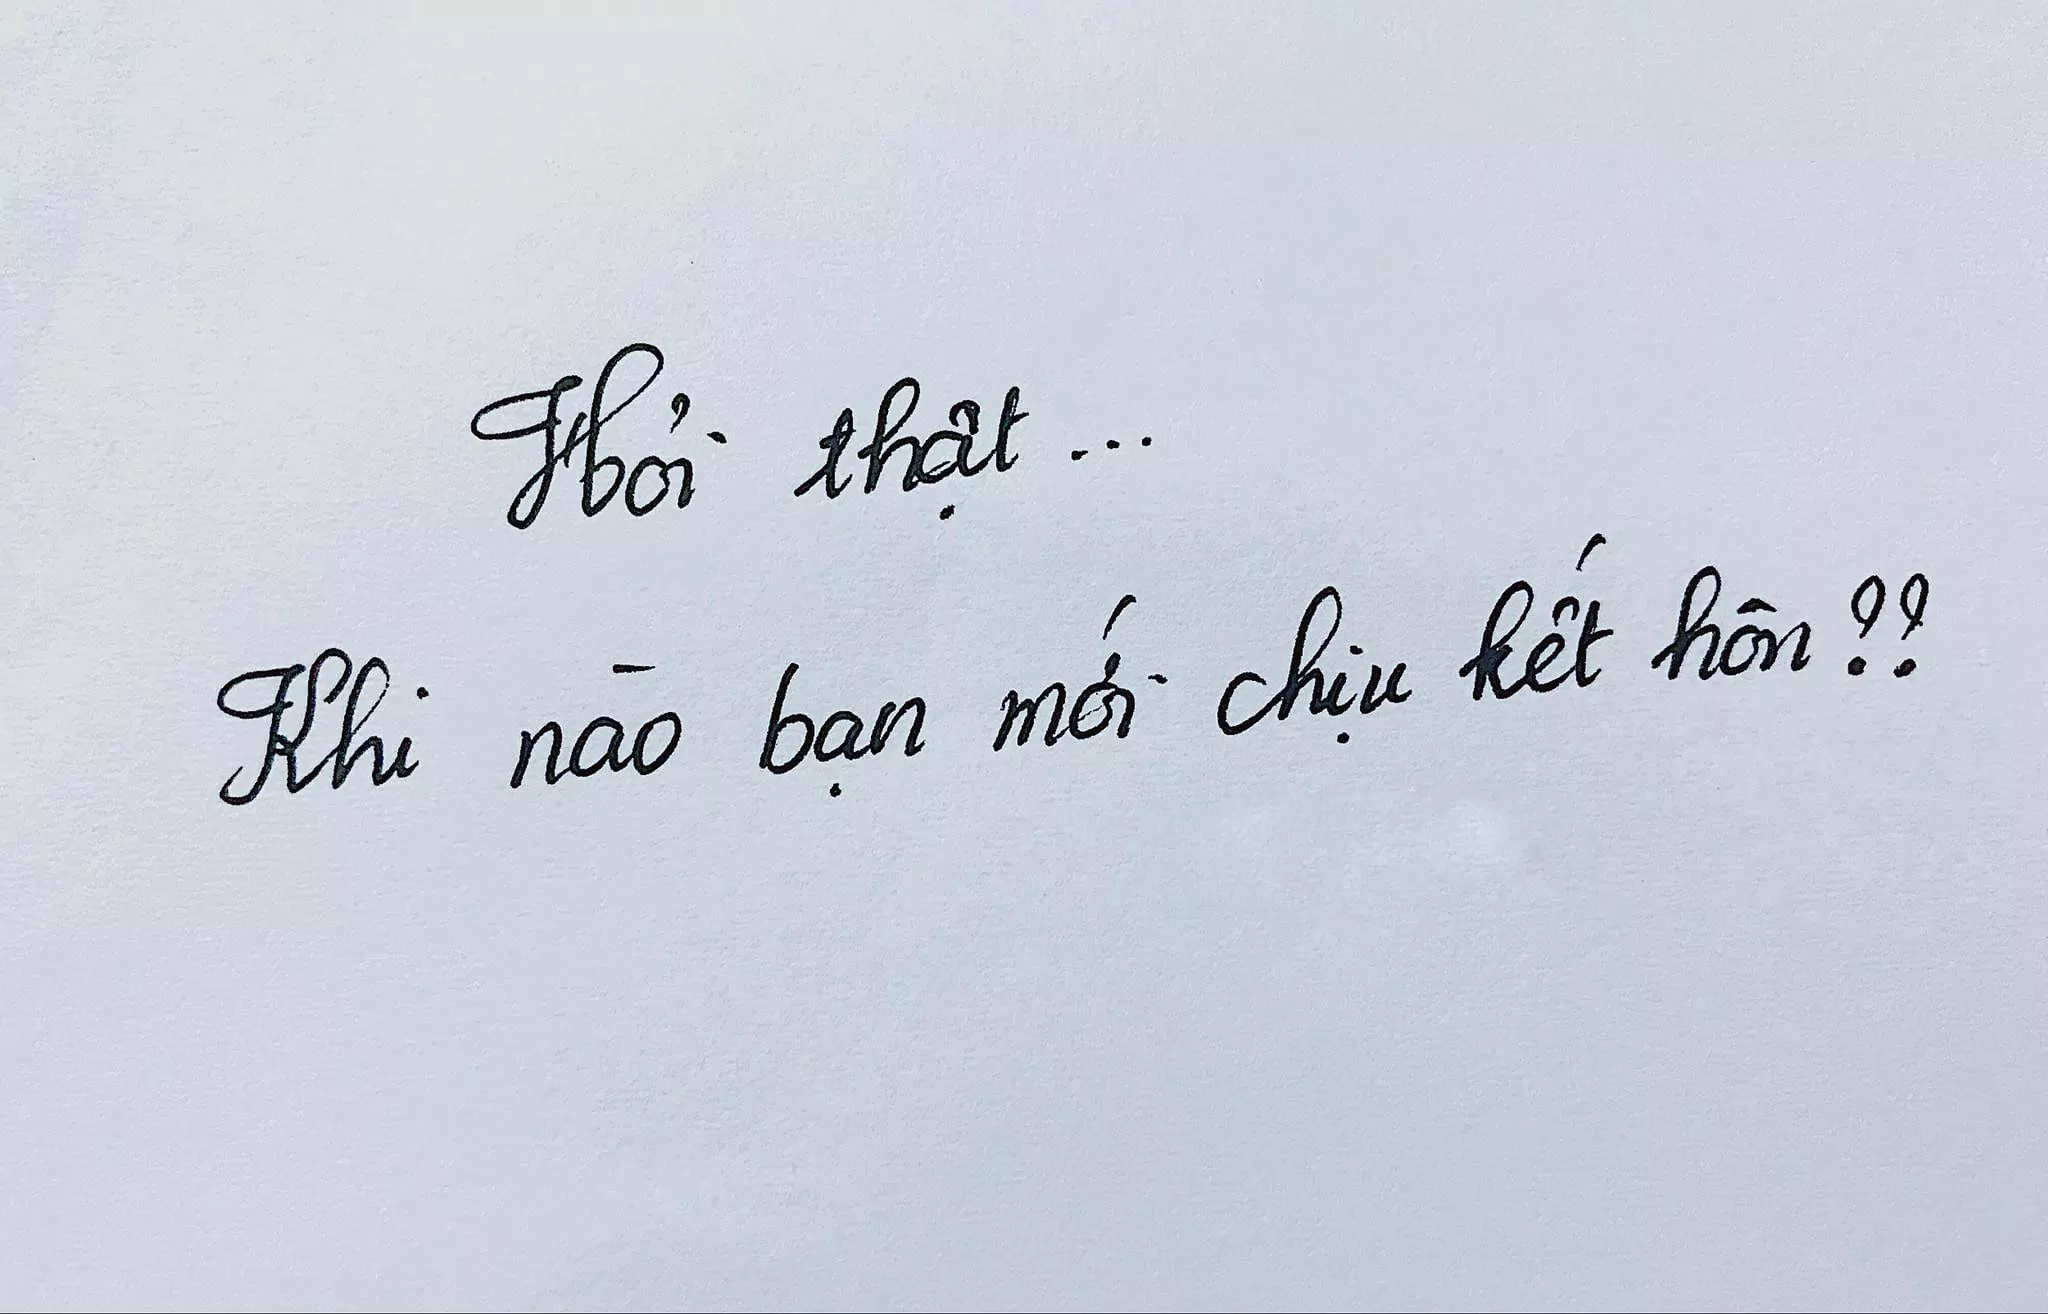 Hỏi thật...
Khi nào bạn mới chịu kết hôn??